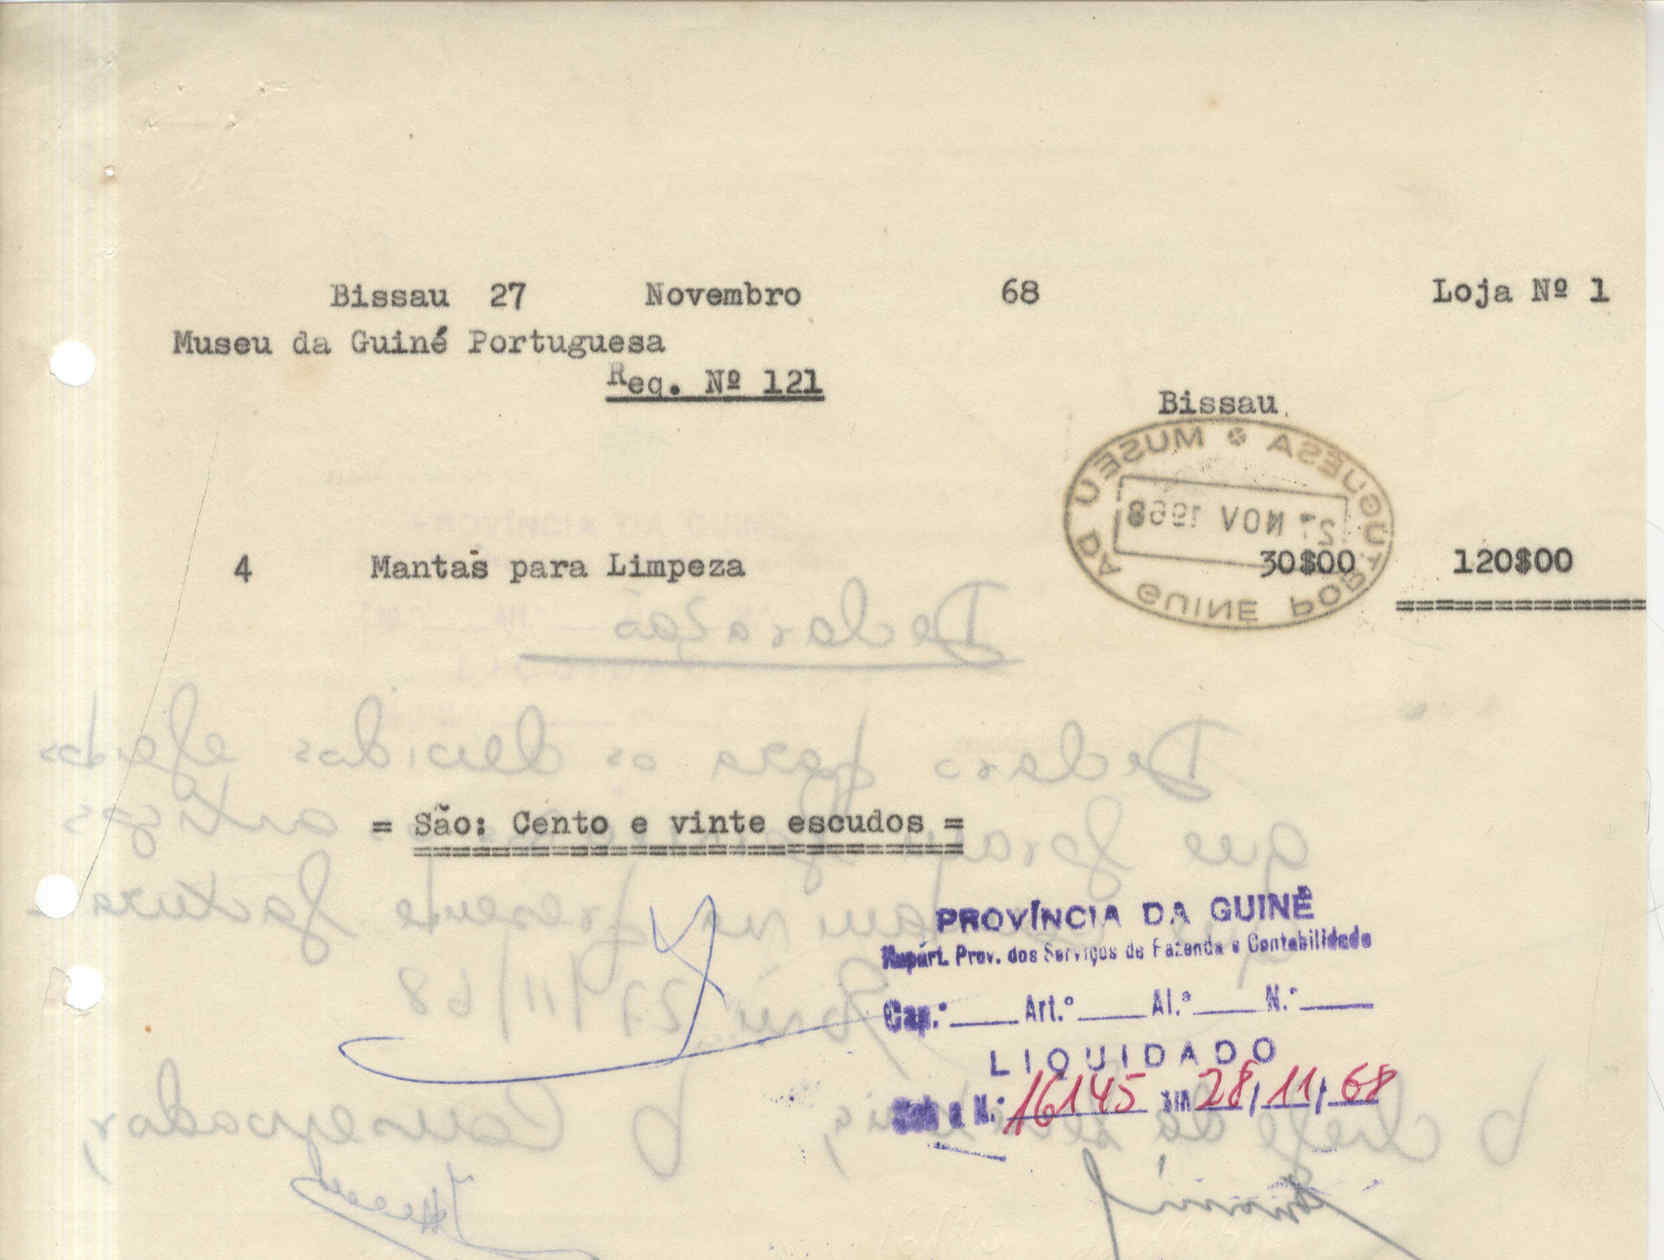 Bissau 27 Novembro 68 Loja Nº 1
Museu da Guiné Portuguesa
Req. Nº 121
Bissau
MUSEU DA GUINE PORTUGUESA
NOV 1968
4 Mantas para Limpeza 30$00 120$00
Declaração
Declaro para os devidos efeitos
= São: Cento e vinte escudos =
que foram artigos
na presente factura
PROVÍNCIA DA GUINÉ
Repart. Prov. dos Serviços de Fazenda e Contabilidade
Cap.º ____ Art.º ____ Al.ª ____ N.º ____
27/11/68
LIQUIDADO
Sob o N.º 16145 em 28/11/68
O chefe da O Conservador,